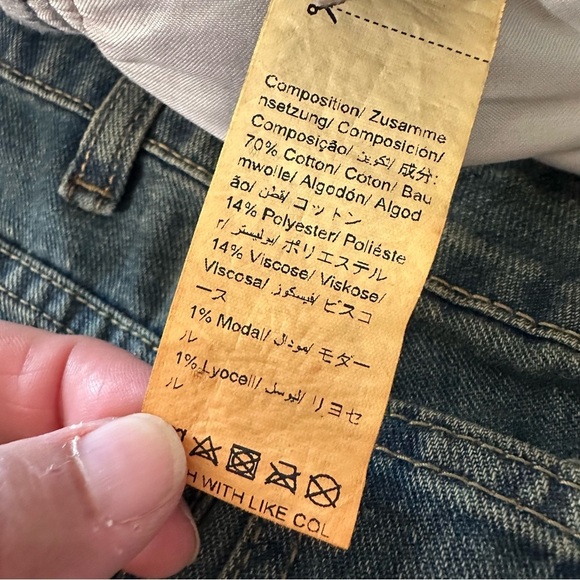 Composition/ Zusamme
nsetzung/ Composición/
Composição/ تكوين/ 成分:
70% Cotton/ Coton/ Bau
mwolle/ Algodón/ Algod
ão/ قطن/ コットン
14% Polyester/ Polièste
r/ بوليستر/ ポリエステル
14% Viscose/ Viskose/
Viscosa/ فيسكوز/ ビスコ
ース
1% Modal/ مودال/ モダー
ル
1% Lyocell/ ليوسل/ リヨセ
ル
H WITH LIKE COL